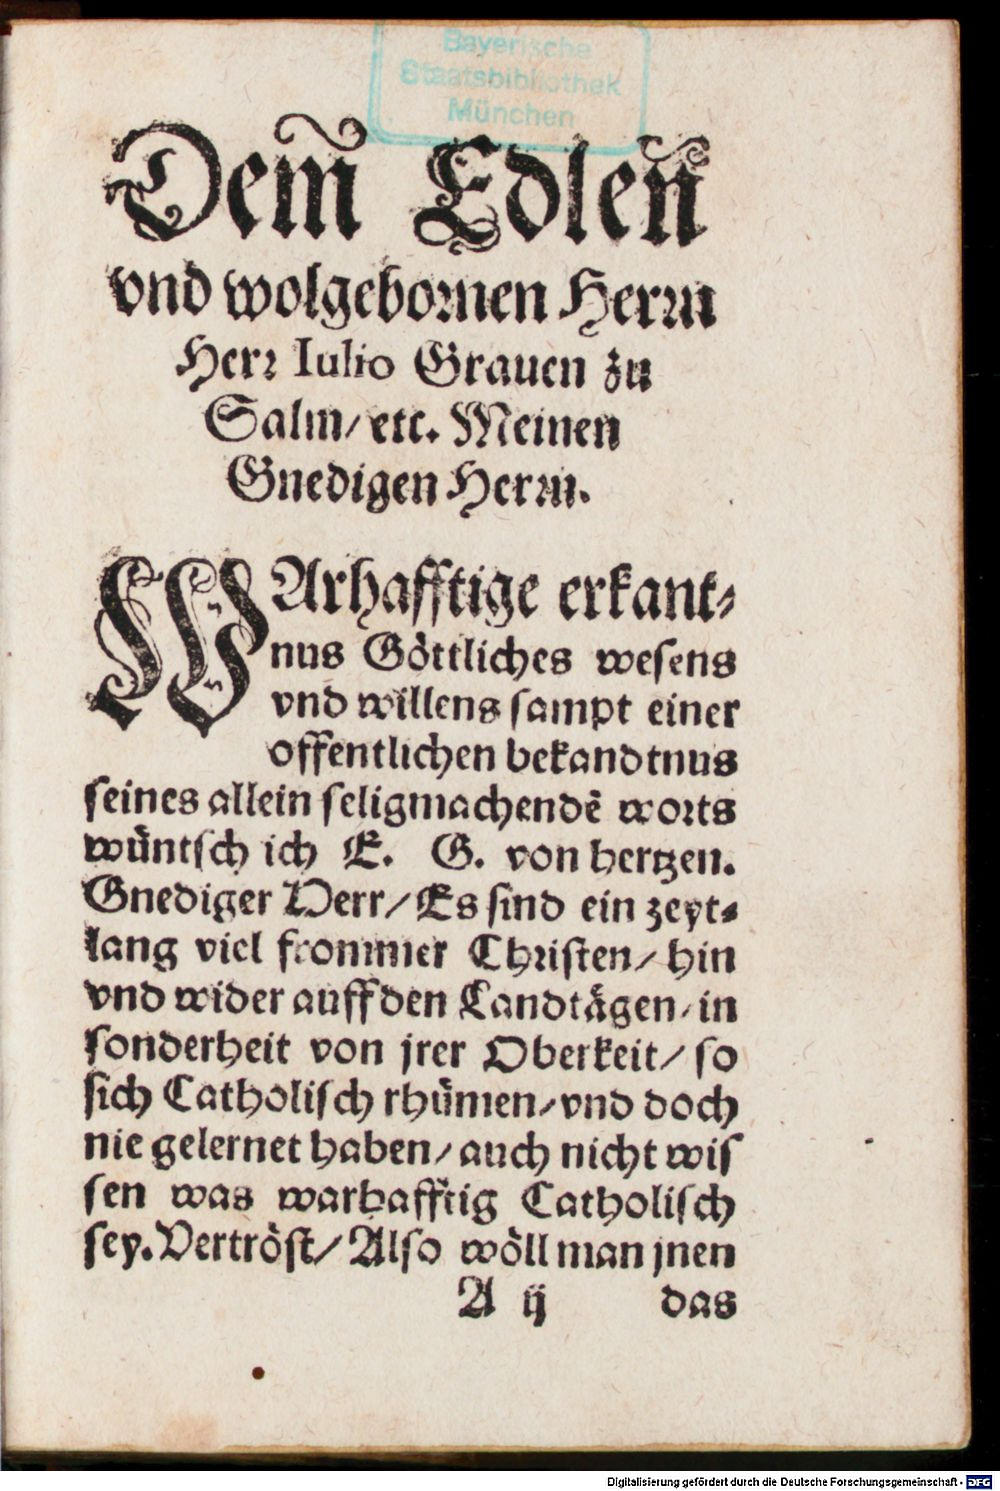 Bayerische
Staatsbibliothek
München
Dem Edlen
vnd wolgebornen Herrn
Herr Iulio Grauen zu
Salm/ etc. Meinen
Gnedigen Herrn.
WArhafftige erkant⸗
nus Göttliches wesens
vnd willens sampt einer
offentlichen bekandtnus
seines allein seligmachendẽ worts
wüntsch ich E. G. von hertzen.
Gnediger Herr/ Es sind ein zeyt⸗
lang viel frommer Christen/ hin
vnd wider auff den Landtägen/ in
sonderheit von jrer Oberkeit/ so
sich Catholisch rhümen/ vnd doch
nie gelernet haben/ auch nicht wis
sen was warhafftig Catholisch
sey. Vertröst/ Also wöll man jnen
A ij das
Digitalisierung gefördert durch die Deutsche Forschungsgemeinschaft - DFG